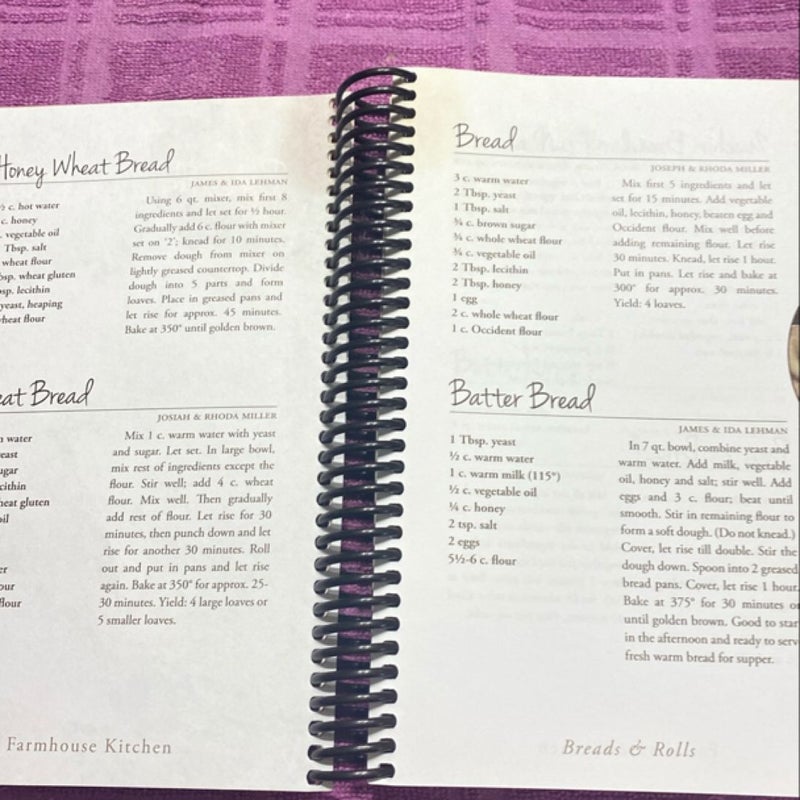 Honey Wheat Bread
JAMES & IDA LEHMAN
½ c. hot water
c. honey
vegetable oil
Tbsp. salt
wheat flour
wheat gluten
lecithin
yeast, heaping
flour
Using 6 qt. mixer, mix first 8
ingredients and let set for ½ hour.
Gradually add 6 c. flour with mixer
set on '2'; knead for 10 minutes.
Remove dough from mixer on
lightly greased countertop. Divide
dough into 5 parts and form
loaves. Place in greased pans and
let rise for approx. 45 minutes.
Bake at 350° until golden brown.
Bread
JOSIAH & RHODA MILLER
water
gluten
flour
Mix 1 c. warm water with yeast
and sugar. Let set. In large bowl,
mix rest of ingredients except the
flour. Stir well; add 4 c. wheat
flour. Mix well. Then gradually
add rest of flour. Let rise for 30
minutes, then punch down and let
rise for another 30 minutes. Roll
out and put in pans and let rise
again. Bake at 350° for approx. 25-
30 minutes. Yield: 4 large loaves or
5 smaller loaves.
Farmhouse Kitchen
Bread
JOSEPH & RHODA MILLER
3 c. warm water
2 Tbsp. yeast
1 Tbsp. salt
¾ c. brown sugar
¾ c. whole wheat flour
¾ c. vegetable oil
2 Tbsp. lecithin
2 Tbsp. honey
1 egg
2 c. whole wheat flour
1 c. Occident flour
Mix first 5 ingredients and let
set for 15 minutes. Add vegetable
oil, lecithin, honey, beaten egg and
Occident flour. Mix well before
adding remaining flour. Let rise
30 minutes. Knead, let rise 1 hour.
Put in pans. Let rise and bake at
300° for approx. 30 minutes.
Yield: 4 loaves.
Batter Bread
JAMES & IDA LEHMAN
1 Tbsp. yeast
½ c. warm water
1 c. warm milk (115°)
½ c. vegetable oil
¼ c. honey
2 tsp. salt
2 eggs
5½-6 c. flour
In 7 qt. bowl, combine yeast and
warm water. Add milk, vegetable
oil, honey and salt; stir well. Add
eggs and 3 c. flour; beat until
smooth. Stir in remaining flour to
form a soft dough. (Do not knead.)
Cover, let rise till double. Stir the
dough down. Spoon into 2 greased
bread pans. Cover, let rise 1 hour.
Bake at 375° for 30 minutes or
until golden brown. Good to start
in the afternoon and ready to serve
fresh warm bread for supper.
Breads & Rolls